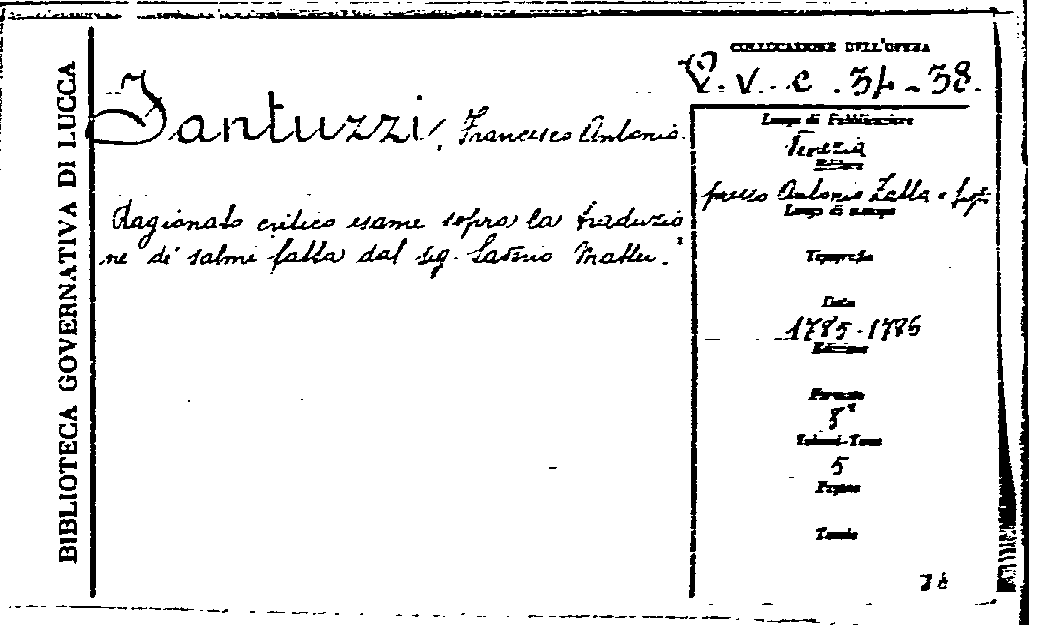 BIBLIOTECA GOVERNATIVA DI LUCCA
Fantuzzi, Francesco Antonio.
Ragionato critico esame sopra la traduzio
ne de' salmi fatta dal sig. Saverio Mattei.
COLLOCAZIONE DELL'OPERA
V. c. 34-38.
Luogo di Pubblicazione
Venezia
Editore
presso Antonio Zatta e figli
Luogo di stampa
Tipografia
Data
1785-1786
Edizione
Formato
8°
Volumi-Tomi
5
Pagine
Tavole